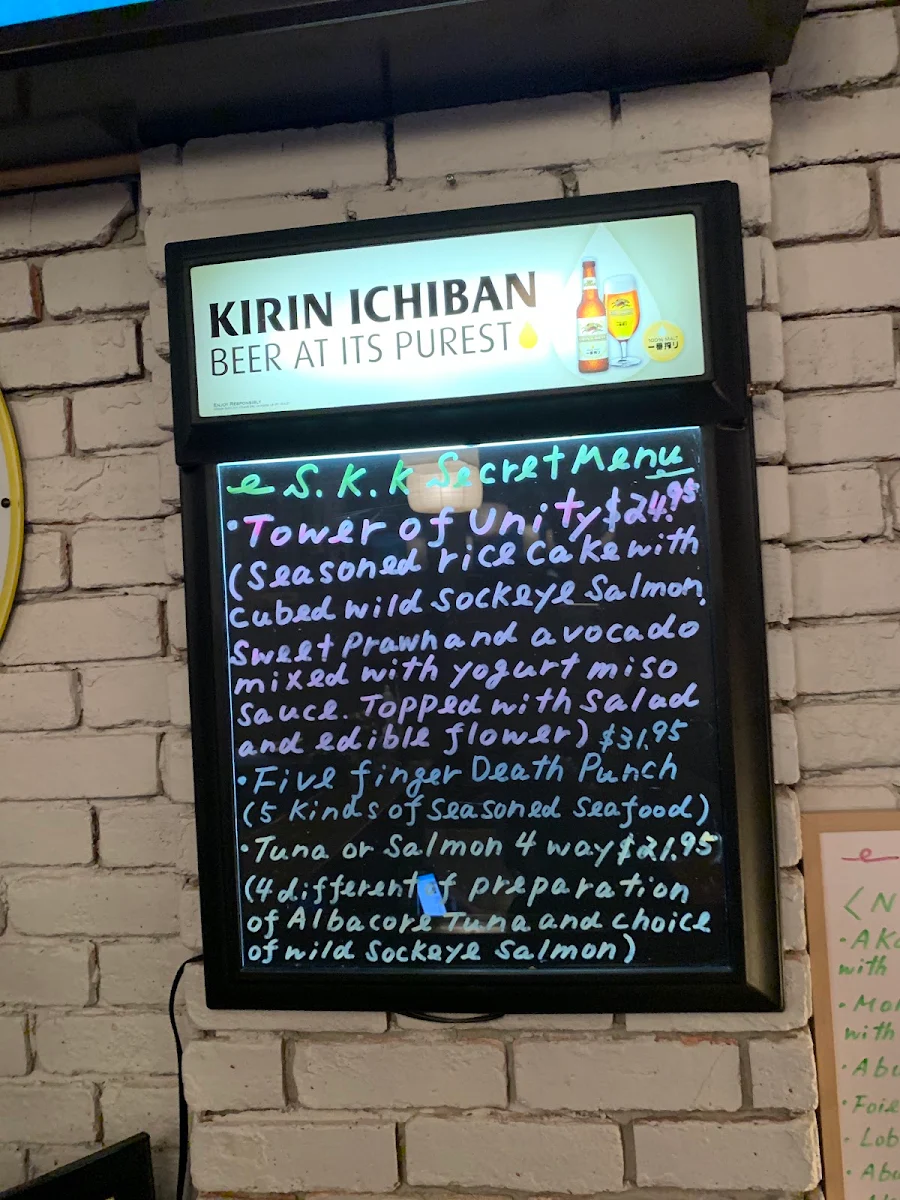 KIRIN ICHIBAN
BEER AT ITS PUREST
一番搾り
S.K.K Secret Menu
•Tower of Unity $24.95
(Seasoned rice cake with
Cubed wild Sockeye Salmon,
Sweet Prawn and avocado
mixed with yogurt miso
Sauce. Topped with Salad
and edible flower) $31.95
•Five finger Death Punch
(5 Kinds of Seasoned Seafood)
•Tuna or Salmon 4 way $21.95
(4 different of preparation
of Albacore Tuna and choice
of wild Sockeye Salmon)
with
with